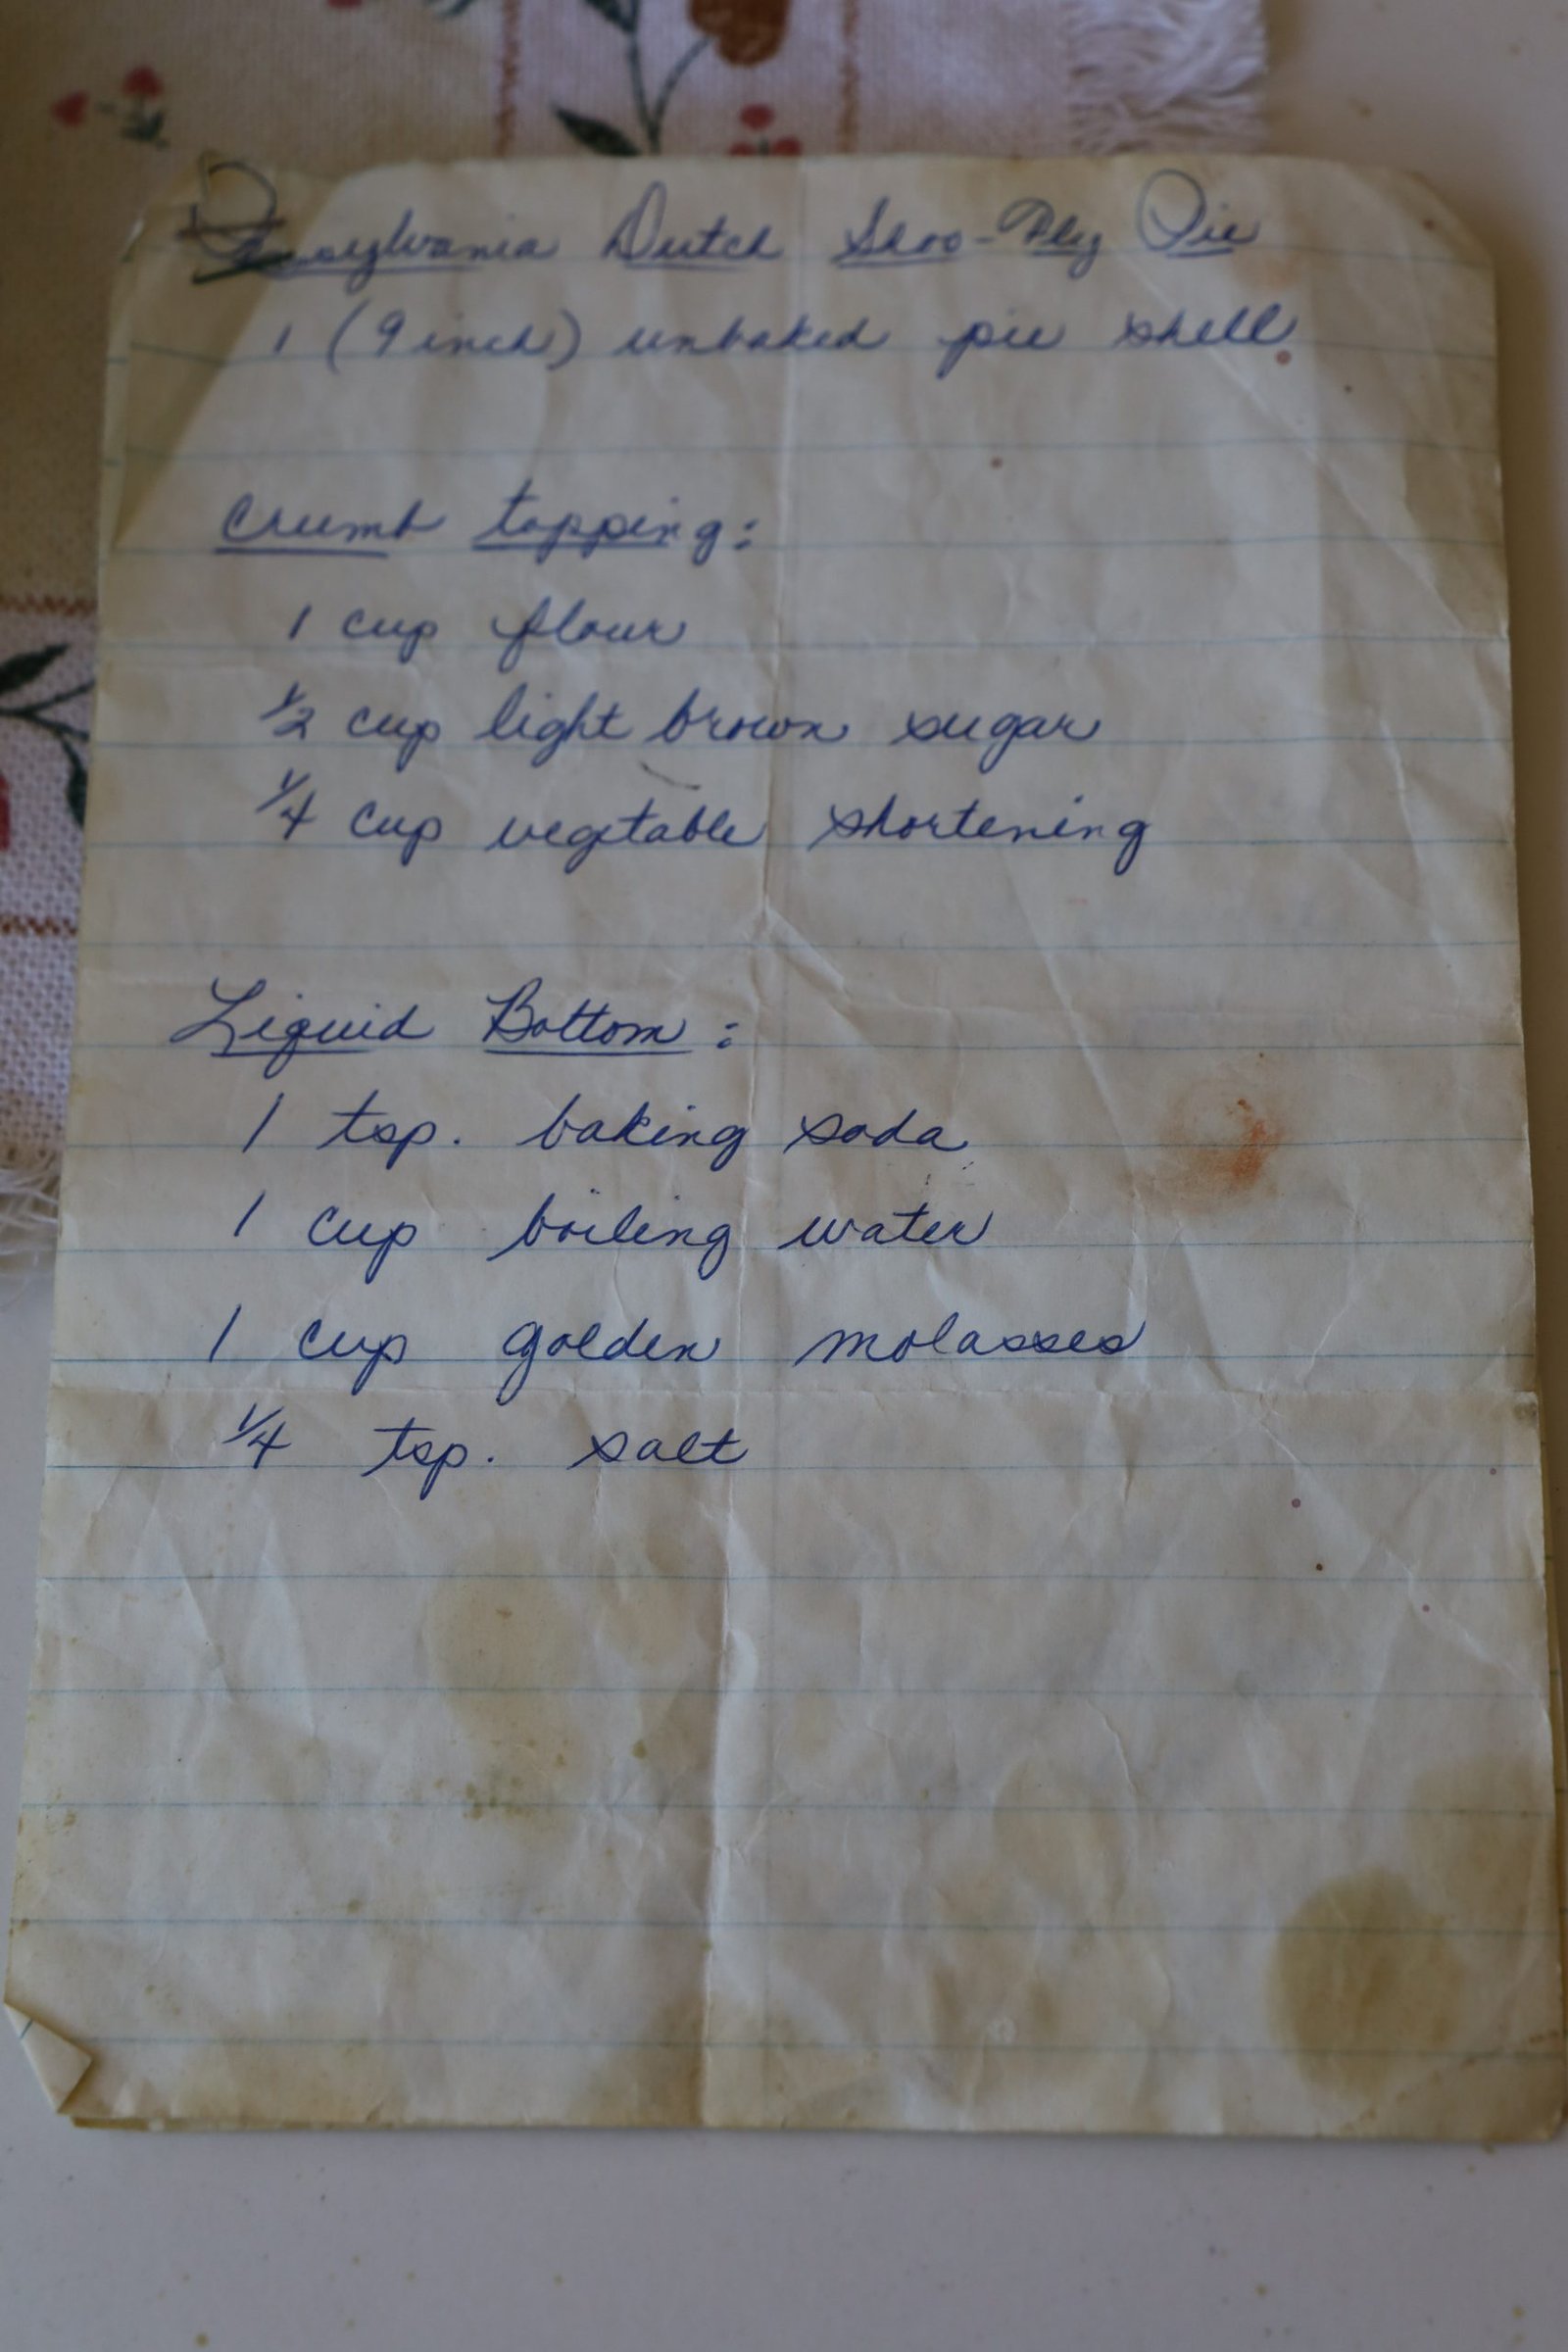 Pennsylvania Dutch Shoo-Fly Pie
1 (9 inch) unbaked pie shell
Crumb topping:
1 cup flour
1/2 cup light brown sugar
1/4 cup vegetable shortening
Liquid Bottom:
1 tsp. baking soda
1 cup boiling water
1 cup golden molasses
1/4 tsp. salt